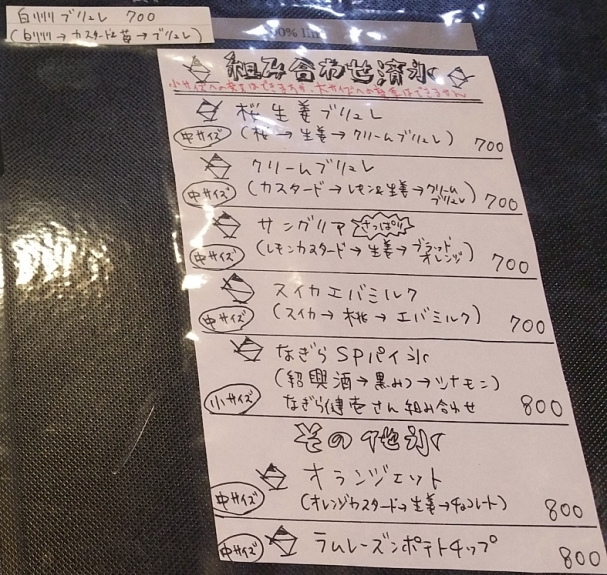 白川 ブリュレ 700
(白川 → カスタード& 苺 → ブリュレ)
0% li
組み合わせ済氷
小サイズへの変更はできますが、大サイズへの変更はできません
桜生姜ブリュレ
中サイズ (桜 → 生姜 → クリームブリュレ) 700
クリームブリュレ
中サイズ (カスタード → レモン&生姜 → クリームブリュレ) 700
サングリア さっぱり
中サイズ (レモンカスタード → 生姜 → ブラッドオレンジ) 700
スイカエバミルク
中サイズ (スイカ → 桃 → エバミルク) 700
なぎらSPパイ氷
(紹興酒 → 黒みつ → シナモン)
小サイズ なぎら健壱さん組み合わせ 800
その他氷
オランジェット
中サイズ (オレンジカスタード → 生姜 → チョコレート) 800
中サイズ ラムレーズンポテトチップ 800